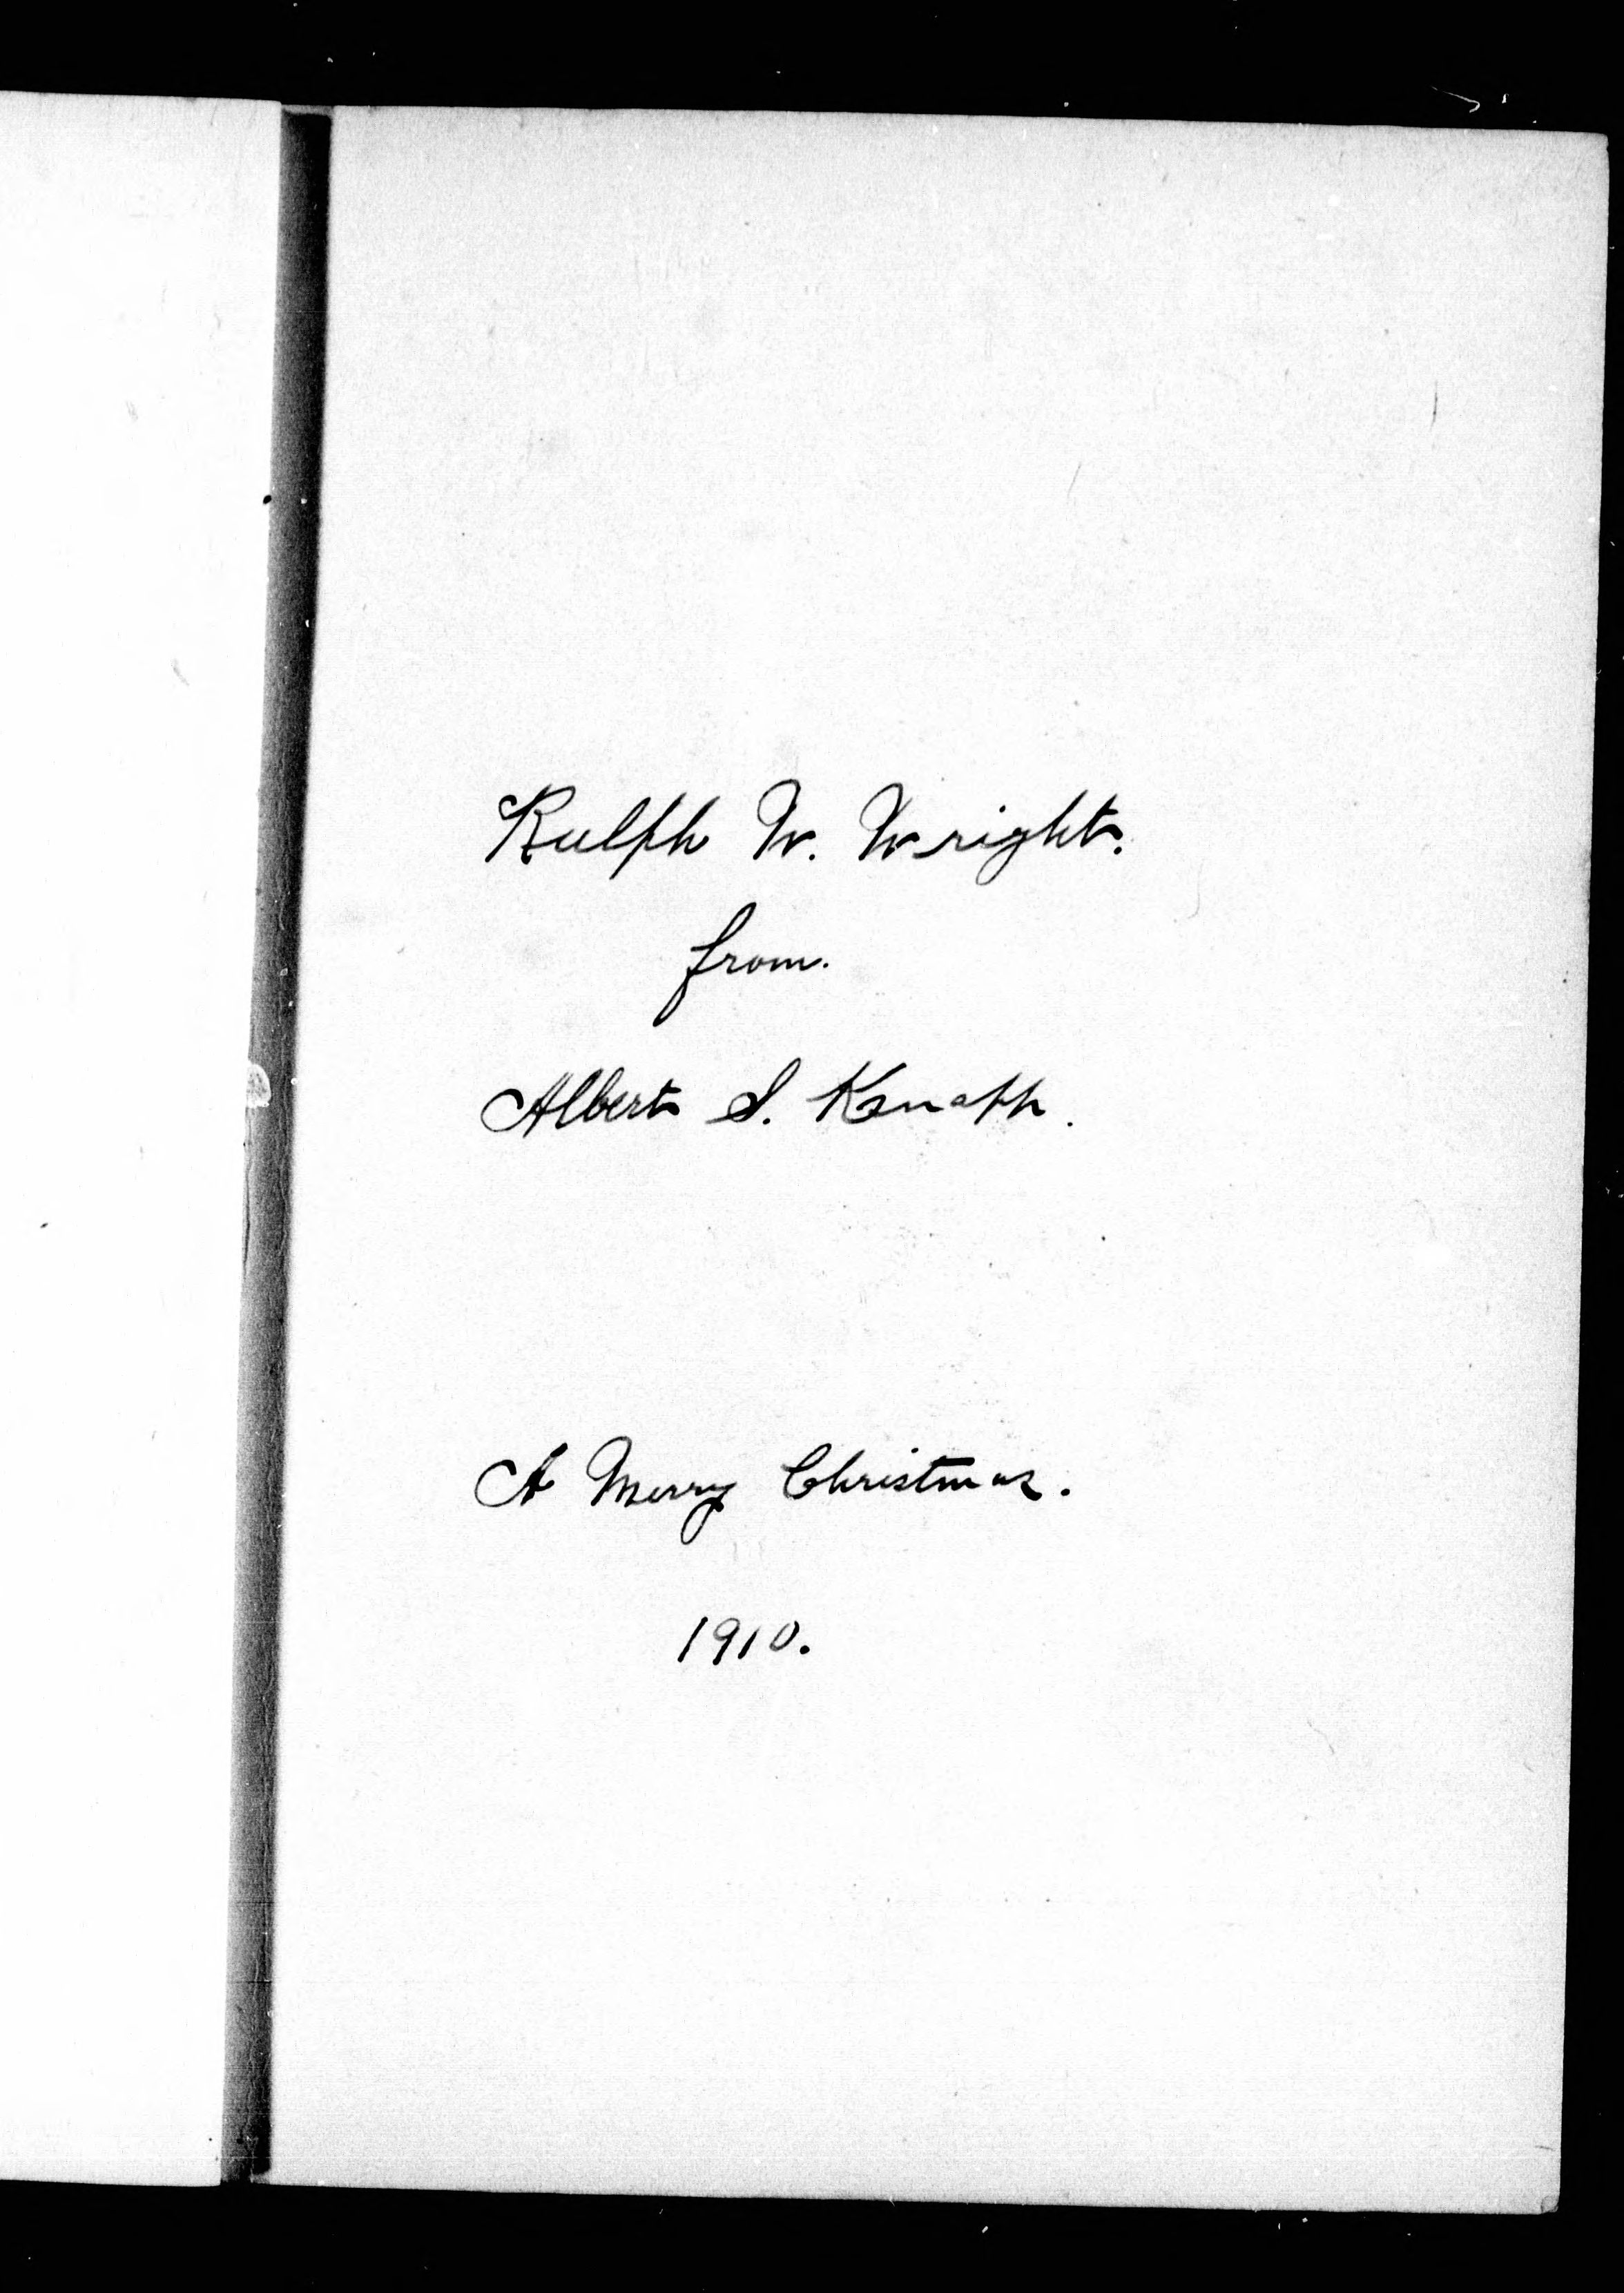 Ralph W. Wright.
from.
Albert S. Knapp.
A Merry Christmas.
1910.